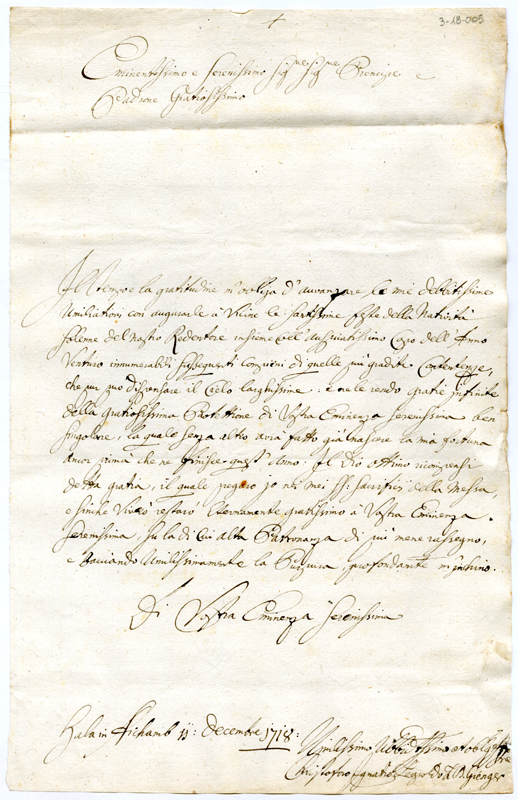 3-18-005
Eminentissimo e Serenissimo Sig.re Sig.re Prencipe e
Padrone Gratiosissimo
Il tempo e la gratitudine m'obliga d'avvanzare le mie debbitissime
Umiliationi con augurarle à Vicine le santissime feste della Natività
salemé del nostro Redentore insieme coll' Auspicatissimo Capo dell' Anno
Venturo innumerabili susseguenti congiuni di quelle più gradite Contentezze,
che può dispensare il Cielo larghissime: e ne le rendo gratie infinite
della gratiosissima Protettione di Vostra Eminenza Serenissima ben
singolare, la quale senza altro avrà fatto già nascere la mia fortuna
ancor prima che ne finisce quest' Anno. Il Dio ottimo ricompensi
detta gratia, il quale pregarò io nei miei SS. sacrificii della Messa,
e sinché Vivrò restarò Eternamente gratissimo à Vostra Eminenza
Serenissima, su la di Cui alta Patronanza di più mene rassegno,
e bacciando Umilissimamente la Purpura, profondamte m'inchino.
Di Vostra Eminenza Serenissima
Hala in 11: Decembre 1718:
Umilissimo Ubbid.mo et oblig.mo
Christoforo Ignatio